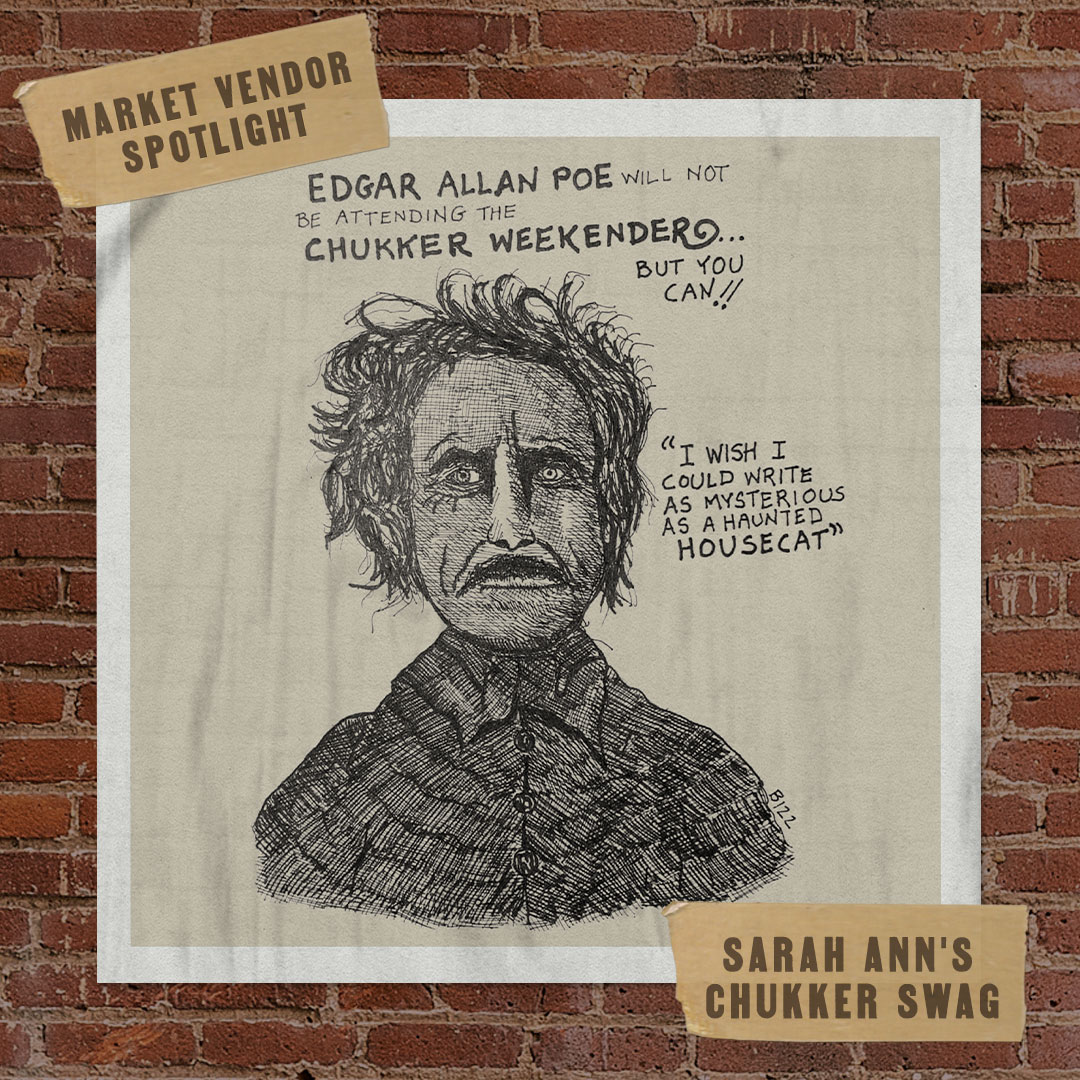 MARKET VENDOR
SPOTLIGHT
EDGAR ALLAN POE WILL NOT
BE ATTENDING THE
CHUKKER WEEKENDER...
BUT YOU
CAN!!
“I WISH I
COULD WRITE
AS MYSTERIOUS
AS A HAUNTED
HOUSECAT”
B122
SARAH ANN'S
CHUKKER SWAG